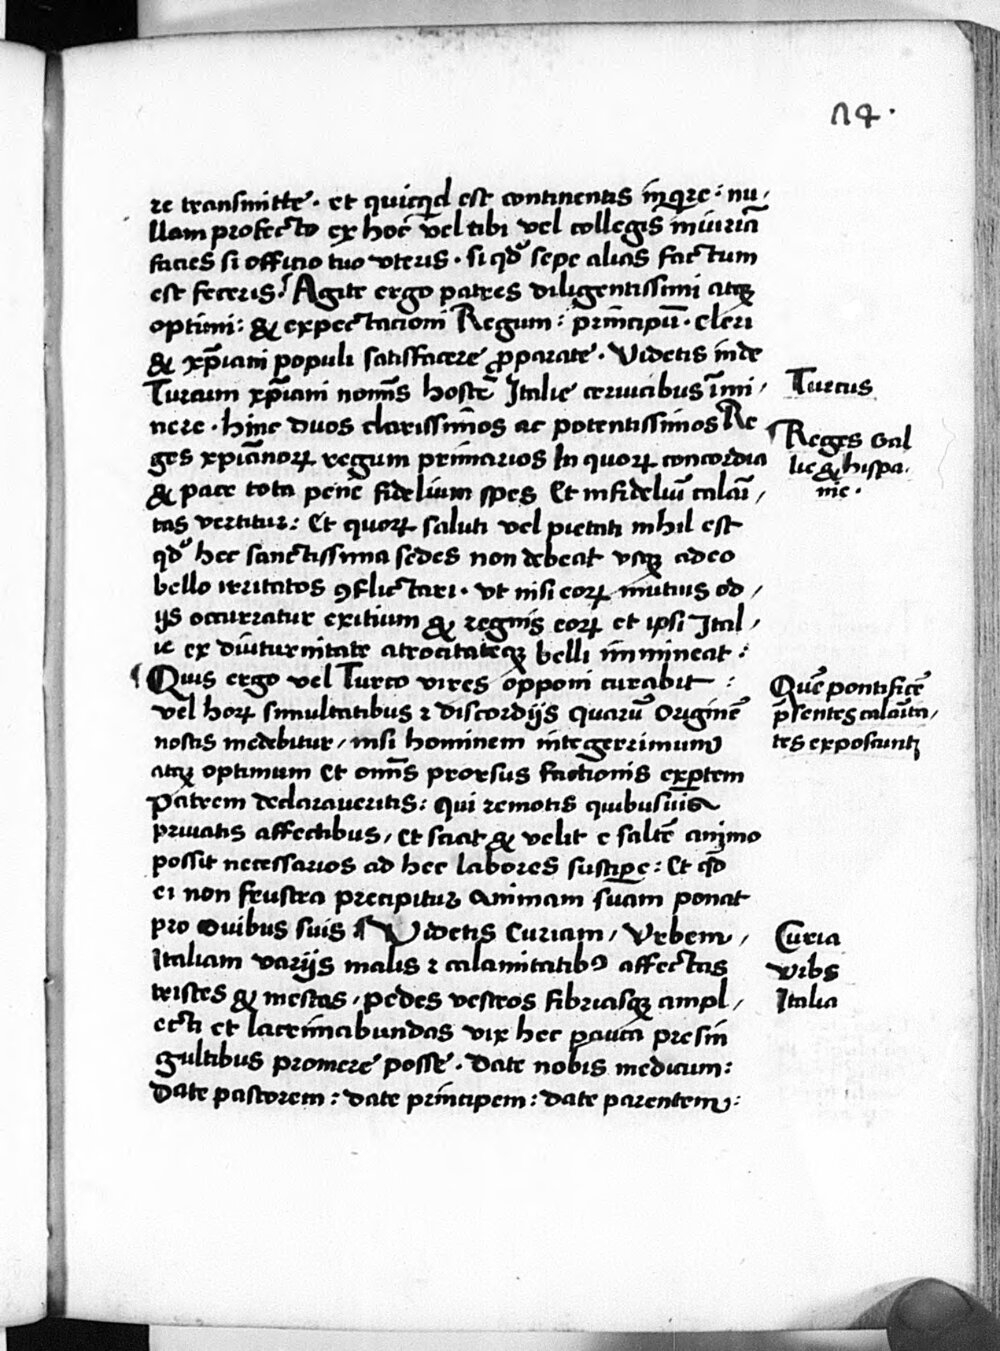 74.
re transmitte. et quicq̄d est continentis inqr̄e: nu,
llam profecto ex hoc vel tibi vel collegis iniuriā
facies si officio tuo vteris. si qd̄ sepe alias factum
est feceris. Agite ergo patres diligentissimi atqꝫ
optimi: & expectacioni Regum: principū. cleri
& xp̄iani populi satisfacere p̄parate. Videtis inde
Turcum xp̄iani nom̄is hostē Italie ceruicibus īmi,
nere. hinc duos clarissimos ac potentissimos Re
ges xpianoꝝ regum primarios In quoꝝ concordia
& pace tota pene fideliuɱ spes Et infideliū calaī,
tas vertitur: Et quoꝝ saluti vel pietati nihil est
qd̄ hec sanctissima sedes non debeat vsqꝫ adeo
bello irritatos ꝯflictari. vt nisi eoꝝ mutuis od,
ijs occurratur exitium & regnis eoꝝ et ipsi Ital,
ie ex diuturnitate atrocitateqꝫ belli immineat:
Quis ergo vel Turco vires opponi curabit:
vel hoꝝ simultatibus ⁊ discordijs quarū Originē
nostis medebitur, nisi hominem integerrimum
atqꝫ optimum Et om̄is prorsus factionis exꝑtem
Patrem declaraueritis: qui remotis quibusuis
priuatis affectibus, et sciat & velit e saltē animo
possit necessarios ad hec labores suscipe: Et qd̄
ei non frustra precipitur Animam suam ponat
pro Ouibus suis ¶ Videtis Curiam, Vrbem,
Italiam varijs malis ⁊ calamitatibꝰ affectas
tristes & mestas, pedes vestros fibriasqꝫ ampl,
ecti et lacrimabundas vix hec pauca pre sin
gultibus promere posse. Date nobis medicum:
Date pastorem: date principem: date parentem:
Turcus
Reges Gal
lie & hispa.
nie.
Quē pontificē
p̄sentes calaīta,
tes exposcunt
Curia
Vrbs
Italia